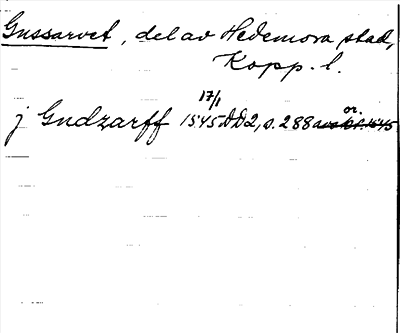 Gussarvet, del av Hedemora stad,
Kopp. l.
17/1 or.
j Gudzarff 1545 DD2, s. 288